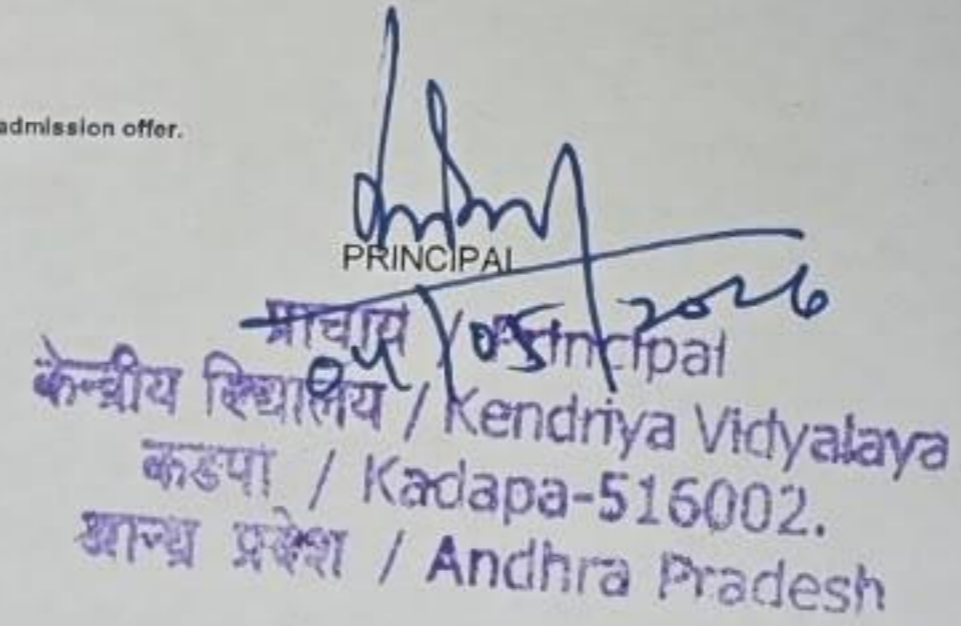 admission offer.
PRINCIPAL
04/05/2026
प्राचार्य / Principal
केन्द्रीय विद्यालय / Kendriya Vidyalaya
कडपा / Kadapa-516002.
आन्ध्र प्रदेश / Andhra Pradesh